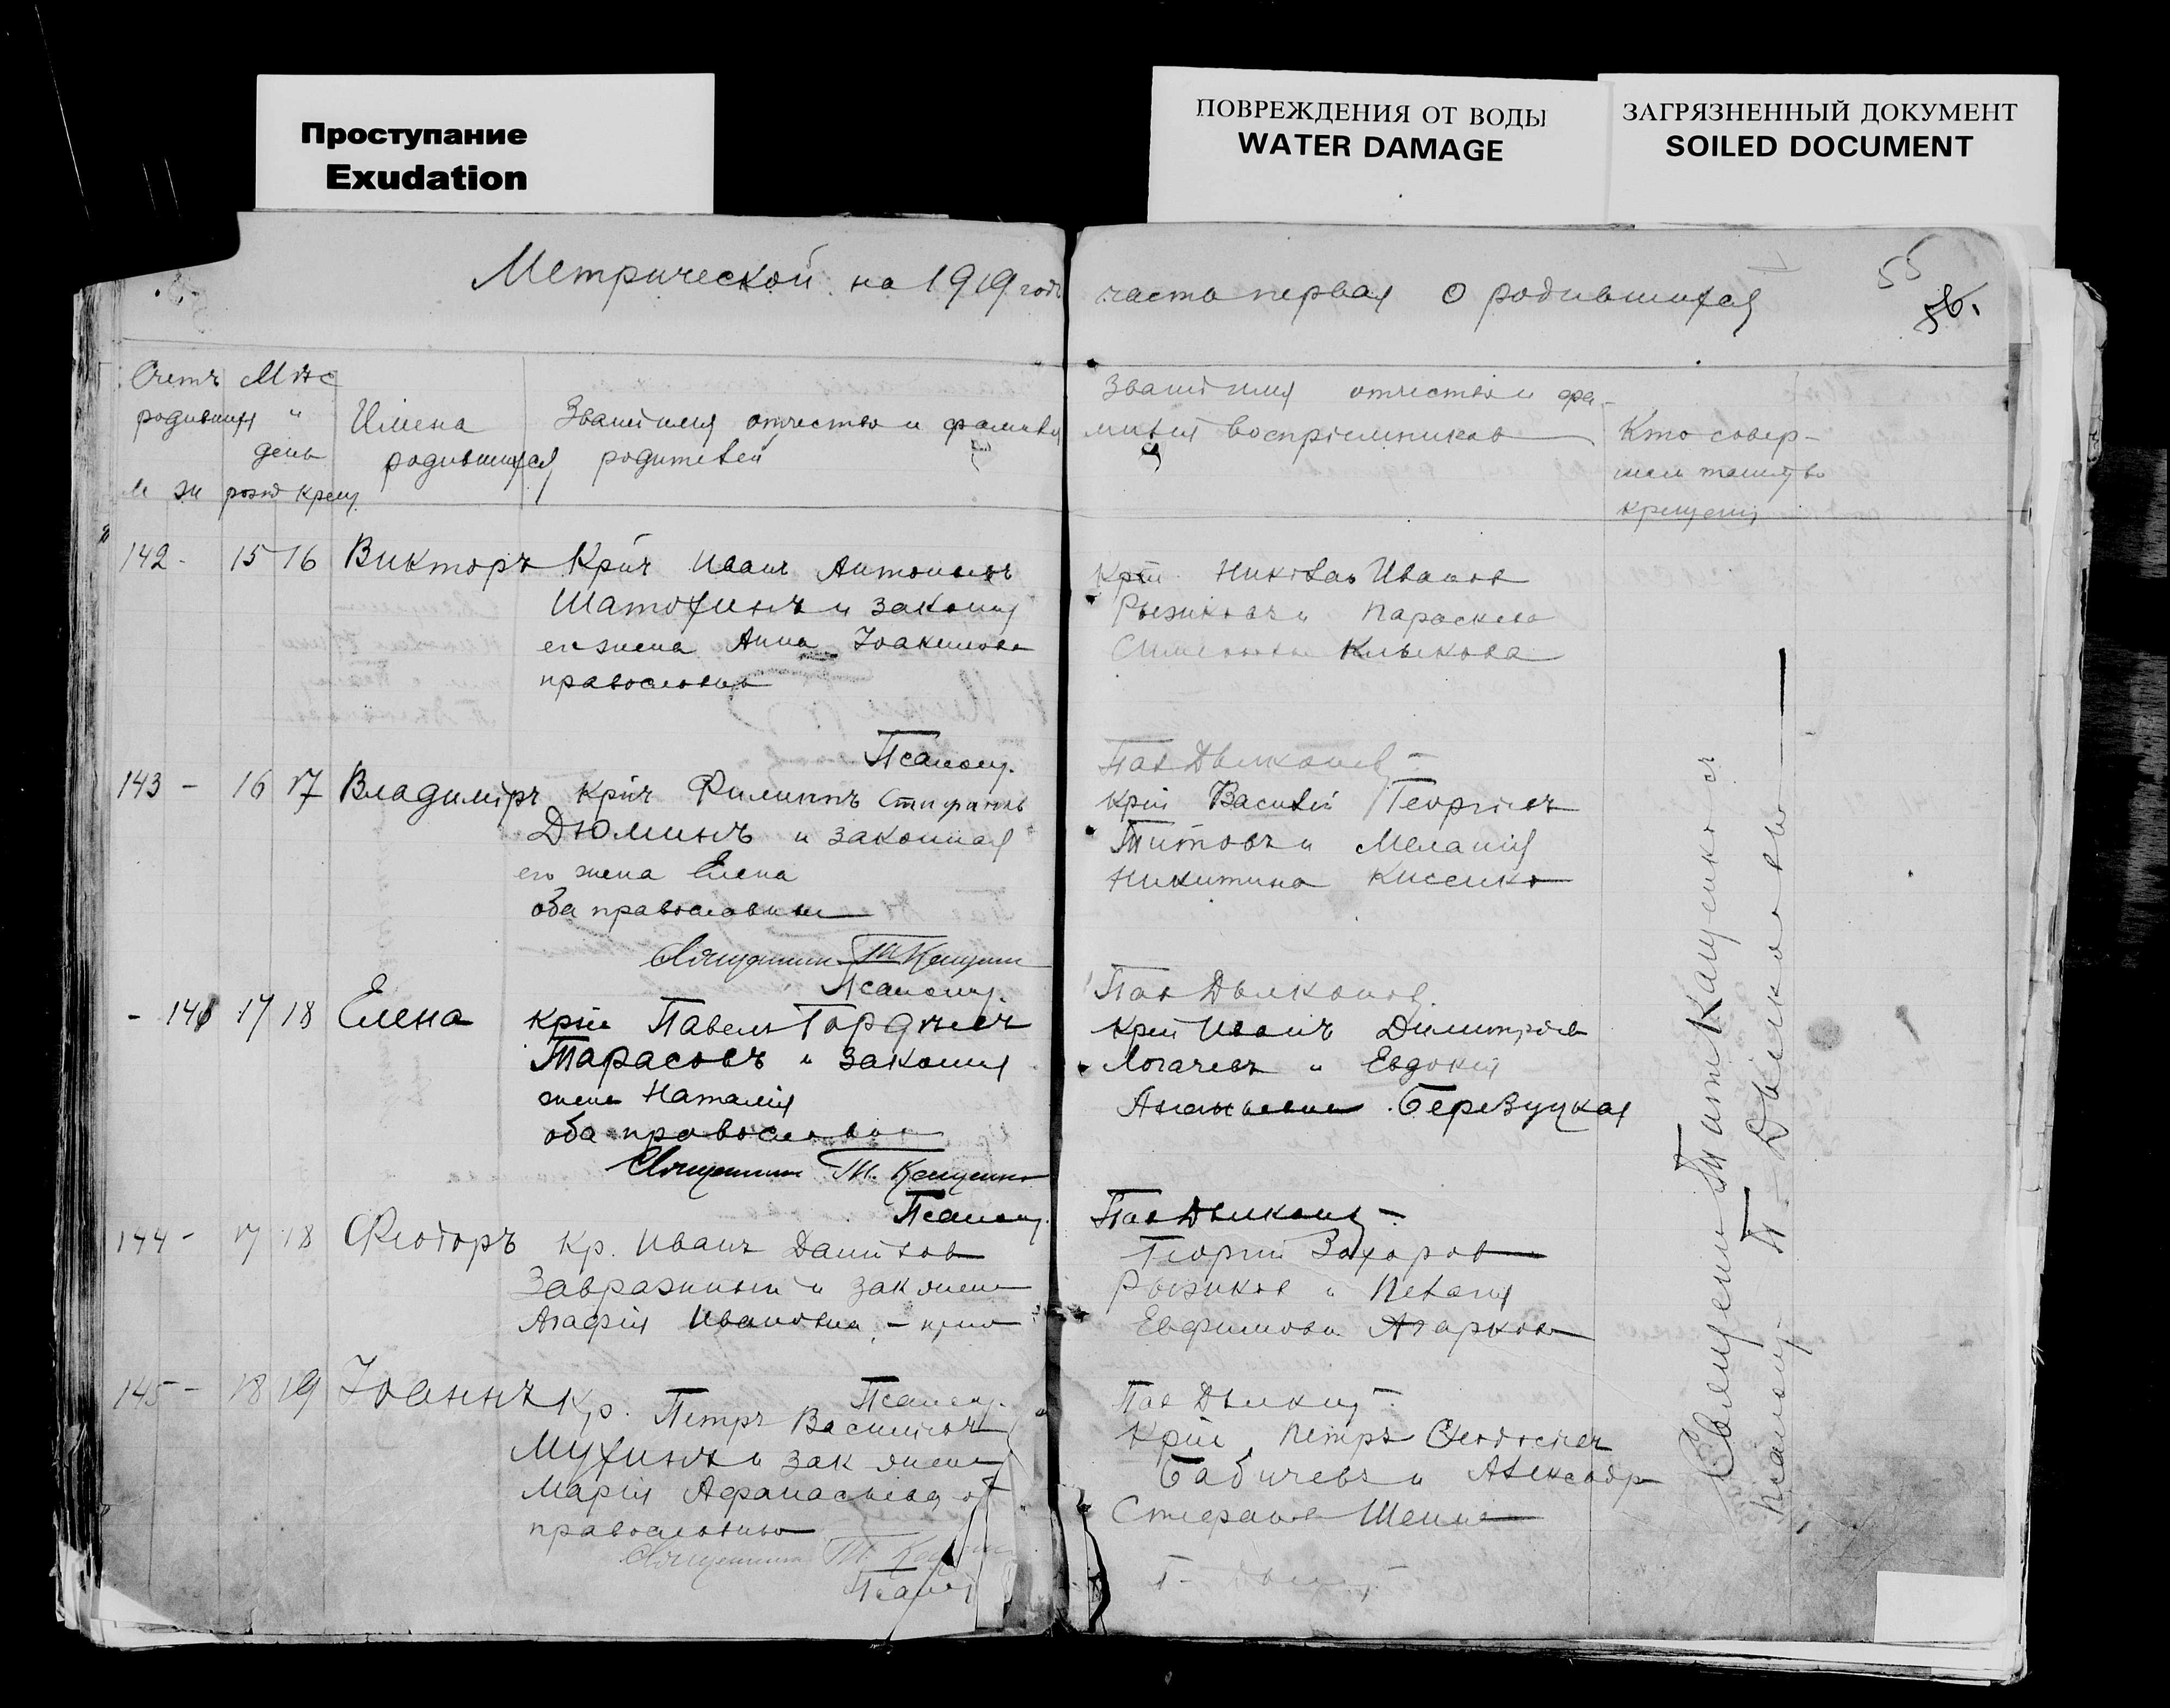 Проступание
Exudation
ПОВРЕЖДЕНИЯ ОТ ВОДЫ
WATER DAMAGE
ЗАГРЯЗНЕННЫЙ ДОКУМЕНТ
SOILED DOCUMENT
Метрической на 1919 годъ
часть первая о родившихся
55
56.
Счетъ
родившихся
м ж
Мѣс
и
день
рожд крещ
Имена
родившихся
Званіе имя отчество и фамилія
родителей
Званіе имя отчество и фа-
милія воспріемниковъ
Кто совер-
шалъ таинство
крещенія
142 - 15 16 Викторъ Кр-нъ Иванъ Антоновъ
Шатохинъ и законная
его жена Анна Іоакимова
православные
Псаломщ.
Кр-нъ Николай Ивановъ
Рыжковъ и Параскева
Симеонова Клыкова
Пав Дьяконовъ -
143 - 16 17 Владиміръ Кр-нъ Филиппъ Стефановъ
Дюминъ и законная
его жена Елена
оба православные
Священникъ Т. Кащенко
Псаломщ.
Кр-нъ Василій Георгіевъ
Титовъ и Меланія
Никитина Киселева
Пав Дьяконовъ.
- 141 17 18 Елена Кр-нъ Павелъ Гордѣевъ
Тарасовъ и законная
жена Наталія
оба православные
Священникъ Т. Кащенко
Псаломщ.
Кр-нъ Иванъ Димитріевъ
Логачевъ и Евдокія
Ананьевна Березуцкая
Пав Дьяконовъ -
144 - 17 18 Феодоръ Кр. Иванъ Даниловъ
Завражный и зак жена
Агафія Ивановна, - прав
Псаломщ.
Георгій Захаровъ
Рыжковъ и Пелагія
Евфимова Агаркова
Пав Дьяконовъ -
145 - 18 19 Іоаннъ Кр. Петръ Васильевъ
Мухинъ и зак жена
Марія Афанасьева об
православные
Священникъ Т. Кащенко
Псаломщ
Кр-нъ Петръ Феодосіевъ
Бабичевъ и Александра
Стефанова Шеина
Священникъ Титъ Кащенко съ
псаломщ. П. Дьяконовъ